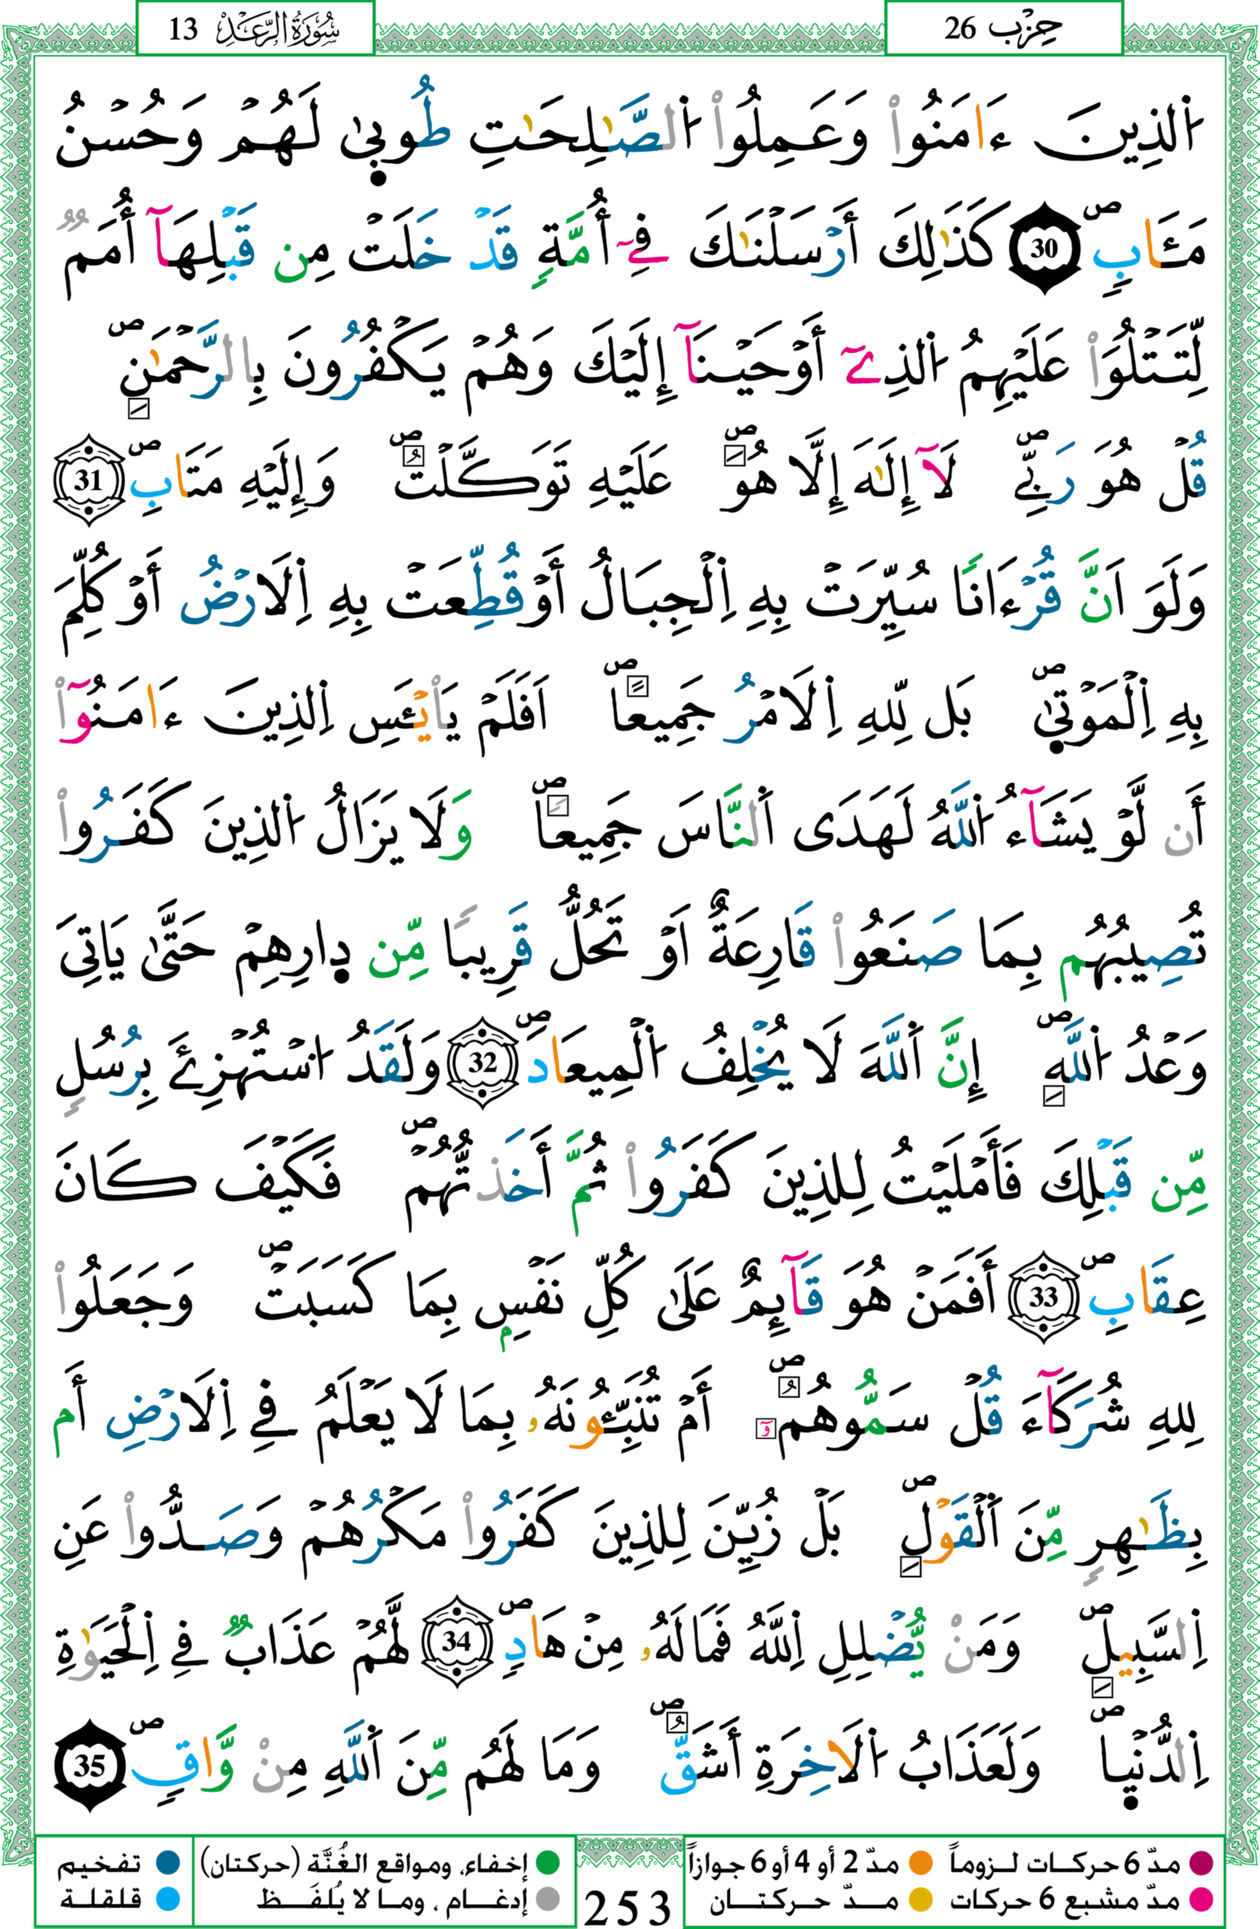 حِزْب 26
سُورَةُ الرَّعْدِ 13
اَ۬لذِينَ ءَامَنُواْ وَعَمِلُواْ اُ۬لصَّٰلِحَٰتِ طُوب۪يٰ لَهُمْ وَحُسْنُ
مَـَٔابٖۖ 30 كَذَٰلِكَ أَرْسَلْنَٰكَ فِےٓ أُمَّةٖ قَدْ خَلَتْ مِن قَبْلِهَآ أُمَمٞ
لِّتَتْلُوَاْ عَلَيْهِمُ اُ۬لذِےٓ أَوْحَيْنَآ إِلَيْكَ وَهُمْ يَكْفُرُونَ بِالرَّحْمَٰنِۖ
قُلْ هُوَ رَبِّےۖ لَآ إِلَٰهَ إِلَّا هُوَۖ عَلَيْهِ تَوَكَّلْتُۖ وَإِلَيْهِ مَتَابِۖ 31
وَلَوَ اَنَّ قُرْءَاناٗ سُيِّرَتْ بِهِ اِ۬لْجِبَالُ أَوْ قُطِّعَتْ بِهِ اِ۬لَارْضُ أَوْ كُلِّمَ
بِهِ اِ۬لْمَوْت۪يٰۖ بَل لِّلهِ اِ۬لَامْرُ جَمِيعاًۖ اَفَلَمْ يَاْيْـَٔسِ اِ۬لذِينَ ءَامَنُوٓاْ
أَن لَّوْ يَشَآءُ اُ۬للَّهُ لَهَدَى اَ۬لنَّاسَ جَمِيعاٗۖ وَلَا يَزَالُ اُ۬لذِينَ كَفَرُواْ
تُصِيبُهُم بِمَا صَنَعُواْ قَارِعَةٌ اَوْ تَحُلُّ قَرِيباٗ مِّن د۪ارِهِمْ حَتَّىٰ يَاتِيَ
وَعْدُ اُ۬للَّهِۖ إِنَّ اَ۬للَّهَ لَا يُخْلِفُ اُ۬لْمِيعَادَۖ 32 وَلَقَدُ اُ۟سْتُهْزِئَ بِرُسُلٖ
مِّن قَبْلِكَ فَأَمْلَيْتُ لِلذِينَ كَفَرُواْ ثُمَّ أَخَذتُّهُمْۖ فَكَيْفَ كَانَ
عِقَابِۖ 33 أَفَمَنْ هُوَ قَآئِمٌ عَلَىٰ كُلِّ نَفْسِۢ بِمَا كَسَبَتْۖ وَجَعَلُواْ
لِلهِ شُرَكَآءَ قُلْ سَمُّوهُمُۥٓۖ أَمْ تُنَبِّـُٔونَهُۥ بِمَا لَا يَعْلَمُ فِے اِ۬لَارْضِ أَم
بِظَٰهِرٖ مِّنَ اَ۬لْقَوْلِۖ بَلْ زُيِّنَ لِلذِينَ كَفَرُواْ مَكْرُهُمْ وَصَدُّواْ عَنِ
اِ۬لسَّبِيلِۖ وَمَنْ يُّضْلِلِ اِ۬للَّهُ فَمَا لَهُۥ مِنْ هَادٖۖ 34 لَّهُمْ عَذَابٞ فِے اِ۬لْحَيَوٰةِ
اِ۬لدُّنْي۪اۖ وَلَعَذَابُ اُ۬لَاخِرَةِ أَشَقُّۖ وَمَا لَهُم مِّنَ اَ۬للَّهِ مِنْ وَّاقٖۖ 35
مدّ 6 حركـات لـزوماً
مدّ 2 أو 4 أو 6 جوازاً
إخفاء، ومواقع الغُنَّة (حركتان)
تفخيم
مدّ مشبع 6 حركات
مدّ حركتـان
253
إدغـام ، ومـا لا يُلفَـظ
قلقلة